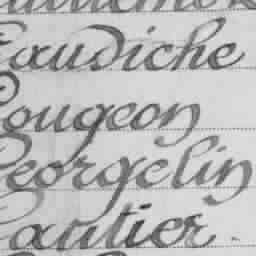 Gaudiche
Gougeon
Georgelin
Gautier.